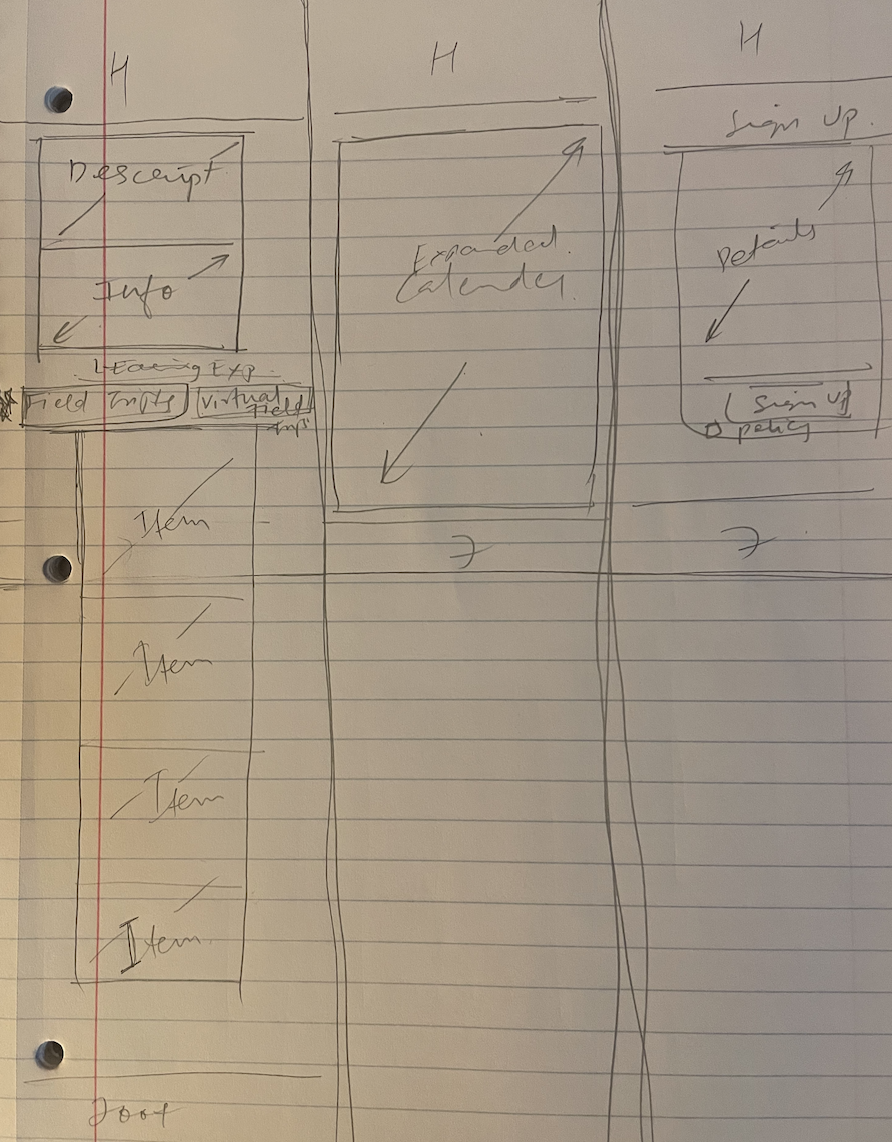 H
Descript
Info
Learning Exp.
Field Trips
Virtual
Field
Trips
Item
Item
Item
Item
Foot
H
Expanded
Calender
F
H
Sign Up.
Details
Sign Up
policy
F